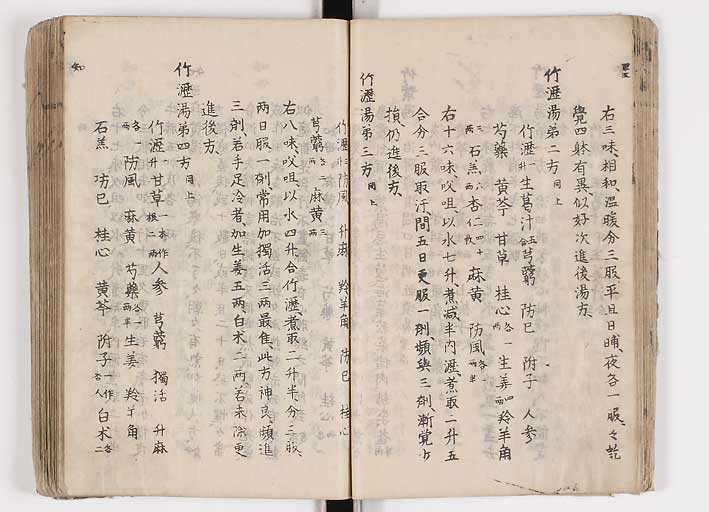 右三味相和温暖分三服平旦日晡夜各一服々訖
覺四躰有異似好次進後湯方
竹瀝湯第二方同上
竹瀝一升生葛汁五合芎藭 防已 附子 人参
芍藥 黄芩 甘草 桂心各一兩生姜四兩羚羊角
三兩石羔六兩杏仁四十枚麻黄 防風各一兩半
右十六味㕮咀以水七升煮减半内瀝煮取二升五
合分三服取汗間五日更服一剤頻與三剤漸覺少
損仍進後方
竹瀝湯第三方同上
竹瀝三升防風 升麻 羚羊角 防已 桂心
芎藭各二兩 麻黄三兩
右八味㕮咀以水四升合竹瀝煮取二升半分三服
兩日服一剤常用加獨活三兩最隹此方神良頻進
三剤若手足冷者加生姜五兩白术二兩若未除更
進後方
竹瀝湯第四方同上
竹瀝一升甘草 人参 芎藭 獨活 升麻
各一兩防風 麻黄 芍藥各一兩半生姜 羚羊角
石羔 防已 桂心 黄芩 附子 白术各二
知